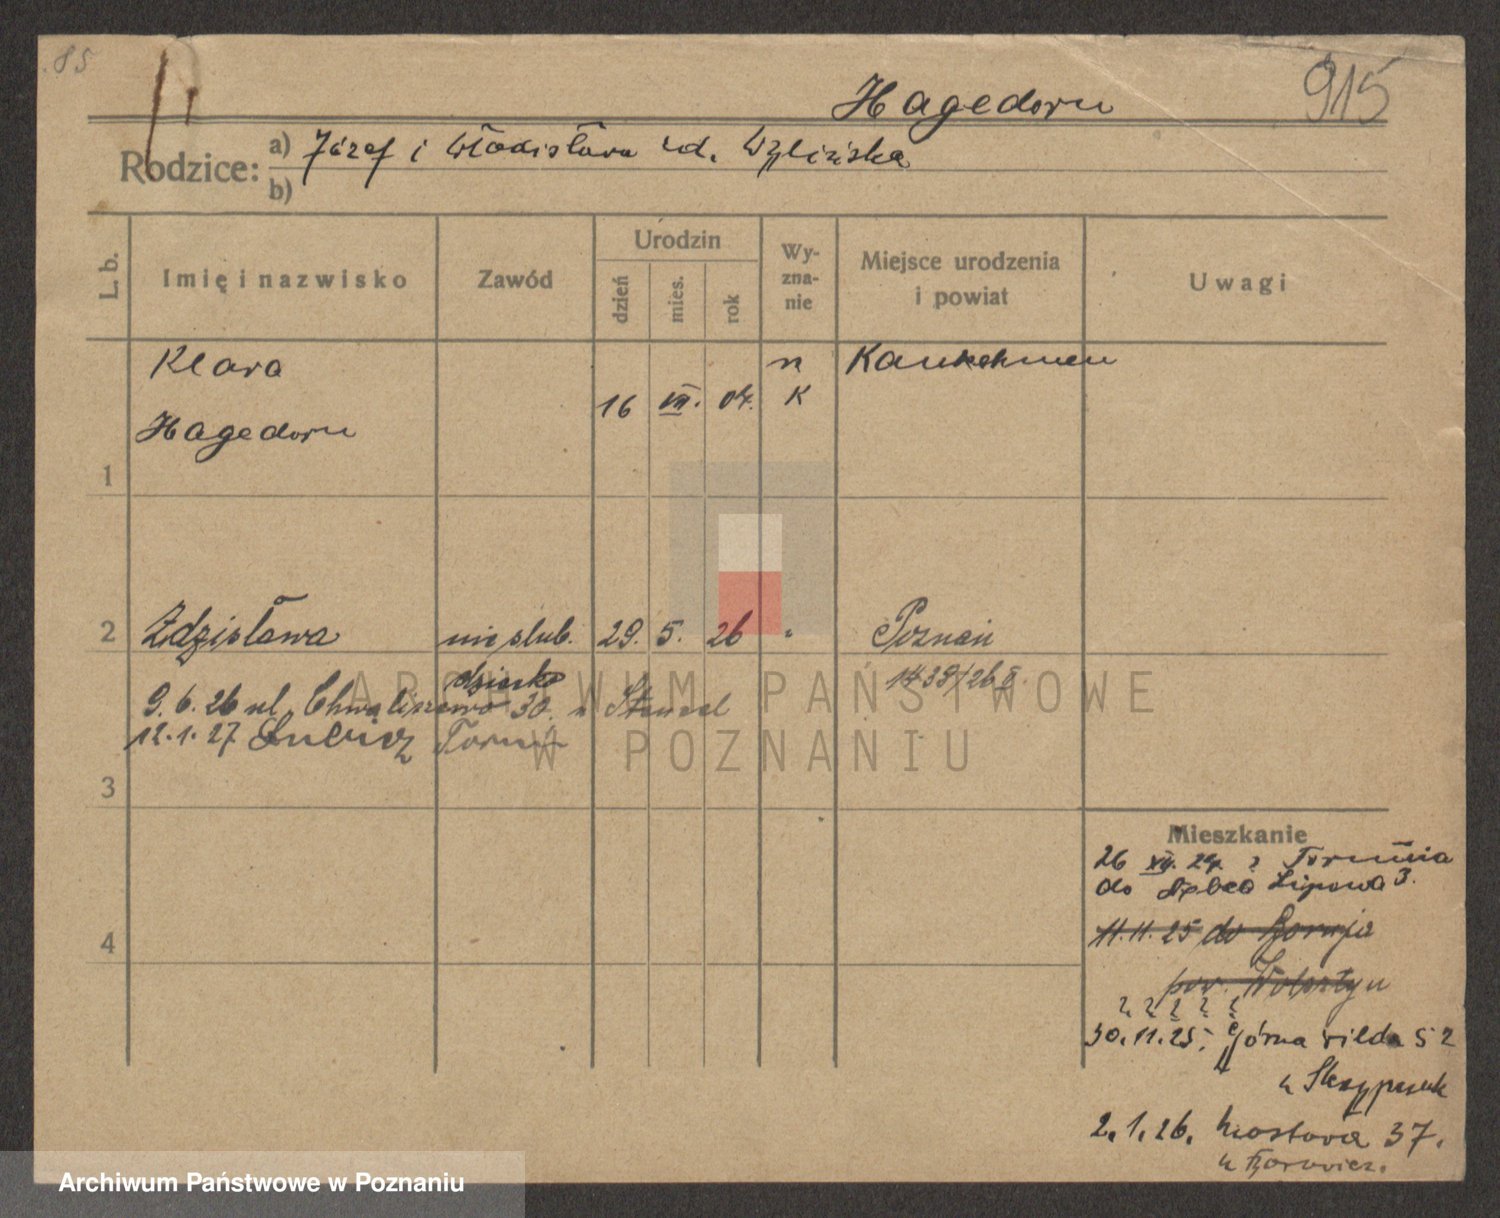 85
915
Hagedorn
Rodzice:
a) Józef i Władisława ud. Wylizińska
b)
L. b.
Imię i nazwisko
Zawód
Urodzin
dzień
mies.
rok
Wy-
zna-
nie
Miejsce urodzenia
i powiat
Uwagi
1
Klara
Hagedorn
16 VII. 04.
n
K
Kaukehmen
2
Zdzisława nie ślub. 29. 5. 26 " Poznań
dziecko
1439/26 II.
9. 6. 26 ul. Chwaliszewo 30. u Stencel
12. 1. 27
3
4
Mieszkanie
26 XII. 24. z Torunia
do Dębca Lipowa 3.
11. 11. 25 do Boruja
pow. Wolsztyn
30. 11. 25. Górna Wilda 52
u
2. 1. 26. Mostowa 37.
u
ARCHIWUM PAŃSTWOWE
W POZNANIU
Archiwum Państwowe w Poznaniu